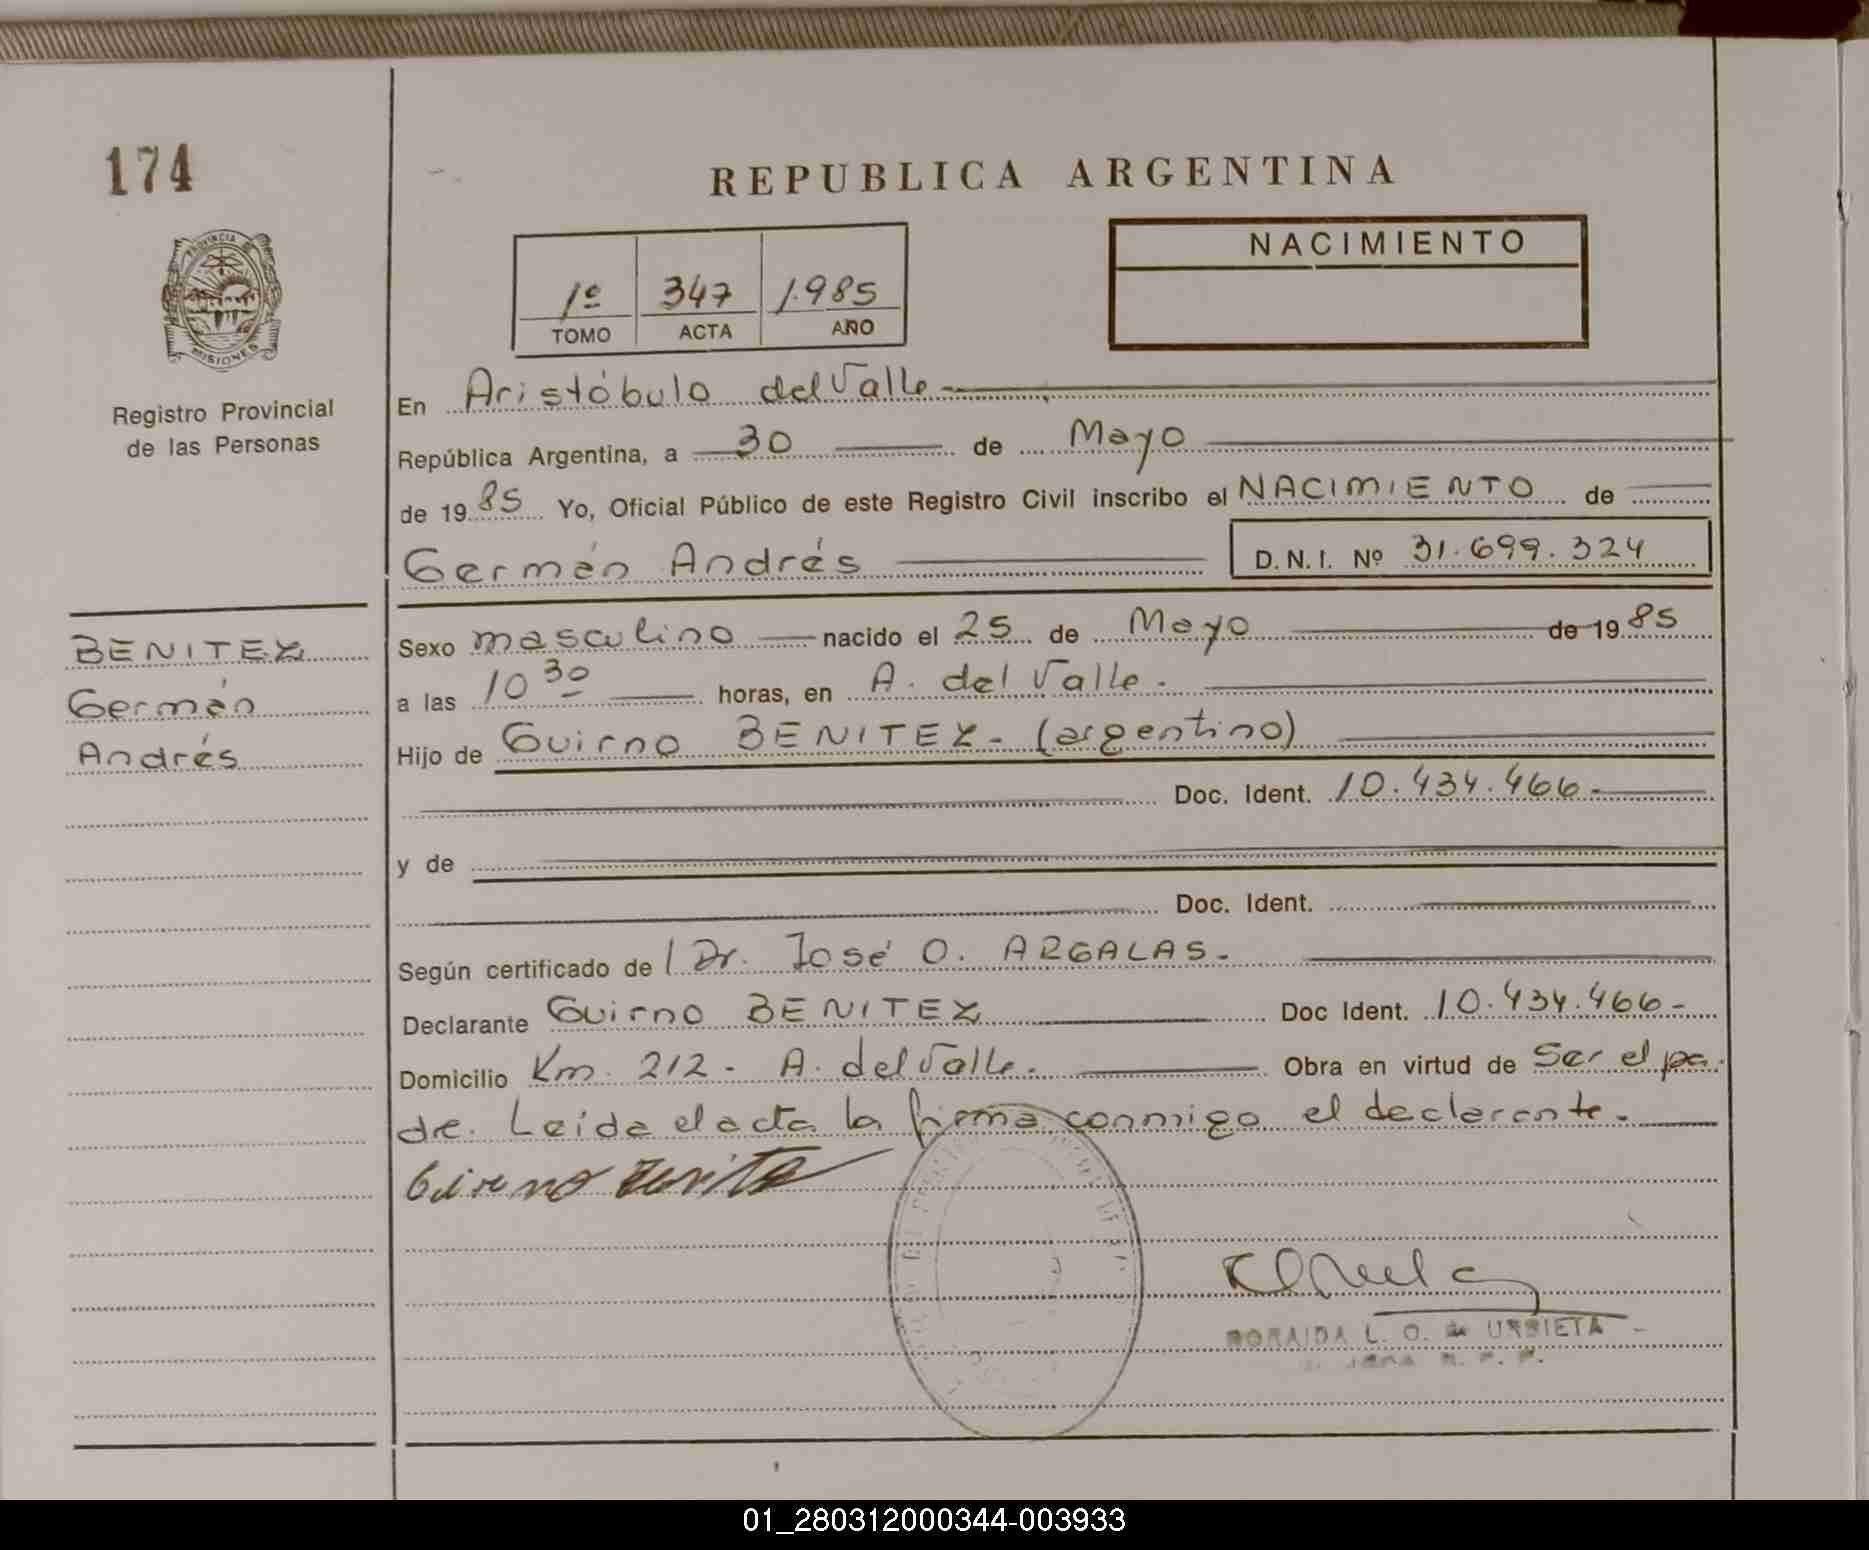 174
REPUBLICA ARGENTINA
PROVINCIA DE
MISIONES
Registro Provincial
de las Personas
1º 347 1.985
TOMO ACTA AÑO
NACIMIENTO
En Aristóbulo del Valle
República Argentina, a 30 de Mayo
de 1985 Yo, Oficial Público de este Registro Civil inscribo el NACIMIENTO de
Germán Andrés D.N.I. Nº 31.699.324
BENITEZ
Germán
Andrés
Sexo masculino nacido el 25 de Mayo de 1985
a las 10 30 horas, en A. del Valle.
Hijo de Guirno BENITEZ - (argentino)
Doc. Ident. 10.434.466
y de
Doc. Ident.
Según certificado de Dr. José O. ARGALAS.
Declarante Guirno BENITEZ Doc Ident. 10.434.466-
Domicilio Km. 212 - A. del Valle. Obra en virtud de Ser el pa
dre. Leída el acta la firma conmigo el declarante.
L. O. de URBIETA
01_280312000344-003933